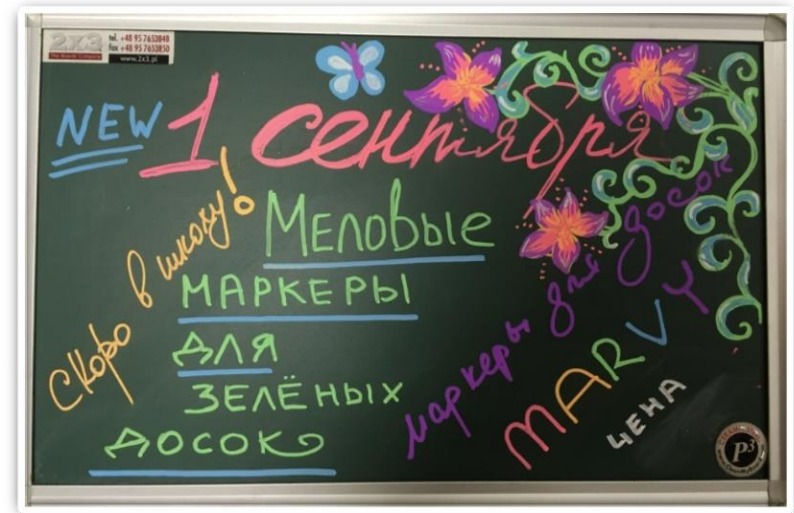 2x3
tel. +48 95 7653848
fax +48 95 7653850
www.2x3.pl
NEW
1 сентября
Скоро в школу!
Меловые
МАРКЕРЫ
ДЛЯ
ЗЕЛЁНЫХ
ДОСОК
маркеры для досок
MARVY
ЦЕНА
P3